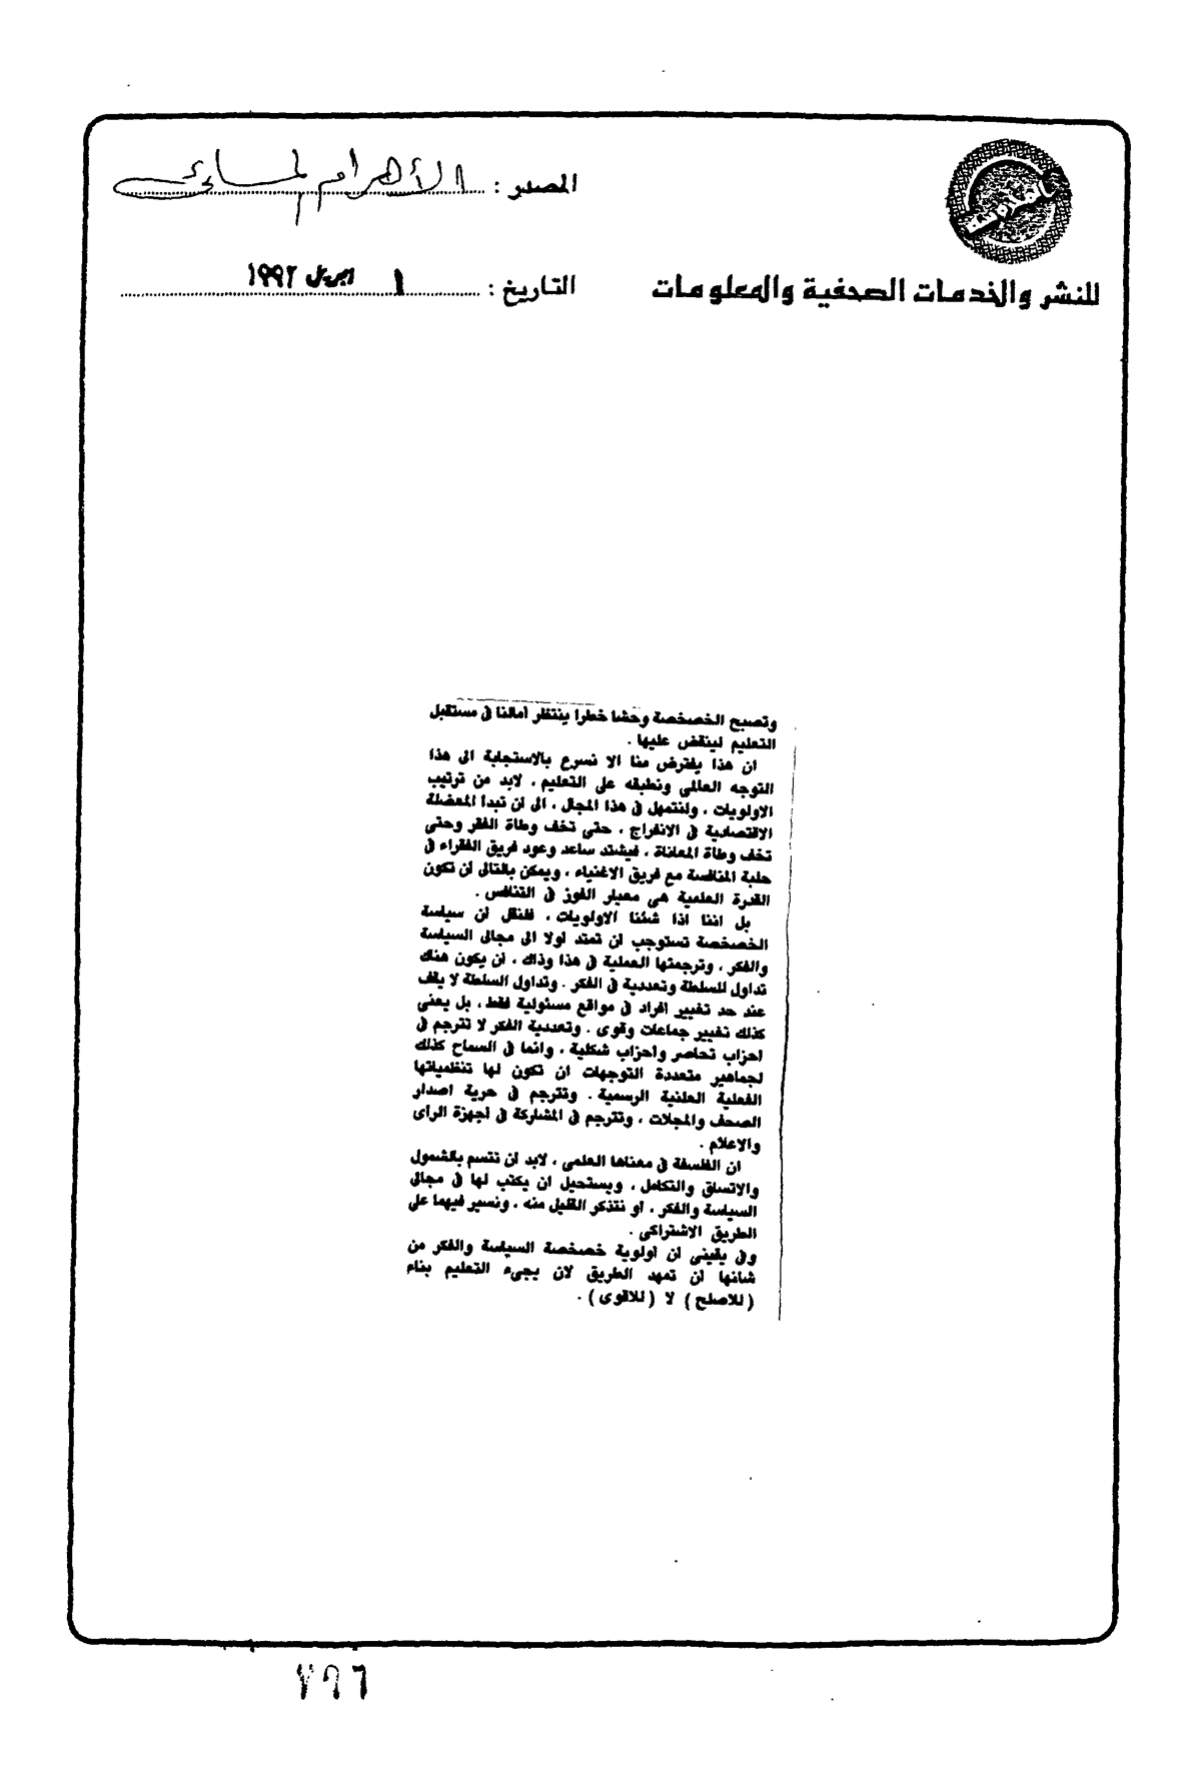 المصدر : الأهرام المسائى
للنشر والخدمات الصحفية والمعلومات
التاريخ : ١ ابريل ١٩٩٢
وتصبح الخصخصة وحشا خطرا ينتظر آمالنا فى مستقبل
التعليم لينقض عليها .
ان هذا يفترض منا الا نسرع بالاستجابة الى هذا
التوجه العالمى ونطبقه على التعليم ، لابد من ترتيب
الاولويات ، ولنتمهل فى هذا المجال ، الى ان تبدا المعضلة
الاقتصادية فى الانفراج ، حتى تخف وطاة الفقر وحتى
تخف وطاة المعاناة ، فيشتد ساعد وعود فريق الفقراء فى
حلبة المنافسة مع فريق الاغنياء ، ويمكن بالتالى ان تكون
القدرة العلمية هى معيار الفوز فى التنافس .
بل اننا اذا شئنا الاولويات ، فلنقل ان سياسة
الخصخصة تستوجب ان تمتد اولا الى مجالى السياسة
والفكر ، وترجمتها العملية فى هذا وذاك ، ان يكون هناك
تداول للسلطة وتعددية فى الفكر . وتداول السلطة لا يقف
عند حد تغيير افراد فى مواقع مسئولية فقط ، بل يعنى
كذلك تغيير جماعات وقوى . وتعددية الفكر لا تترجم فى
احزاب تحاصر واحزاب شكلية ، وانما فى السماح كذلك
لجماهير متعددة التوجهات ان تكون لها تنظيماتها
الفعلية العلنية الرسمية . وتترجم فى حرية اصدار
الصحف والمجلات ، وتترجم فى المشاركة فى اجهزة الراى
والاعلام .
ان الفلسفة فى معناها العلمى ، لابد ان تتسم بالشمول
والاتساق والتكامل ، ويستحيل ان يكتب لها فى مجالى
السياسة والفكر ، او نتذكر القليل منه ، ونسير فيهما على
الطريق الاشتراكى .
وفى يقينى ان اولوية خصخصة السياسة والفكر من
شانها ان تمهد الطريق لان يجىء التعليم بناء
( للاصلح ) لا ( للاقوى ) .